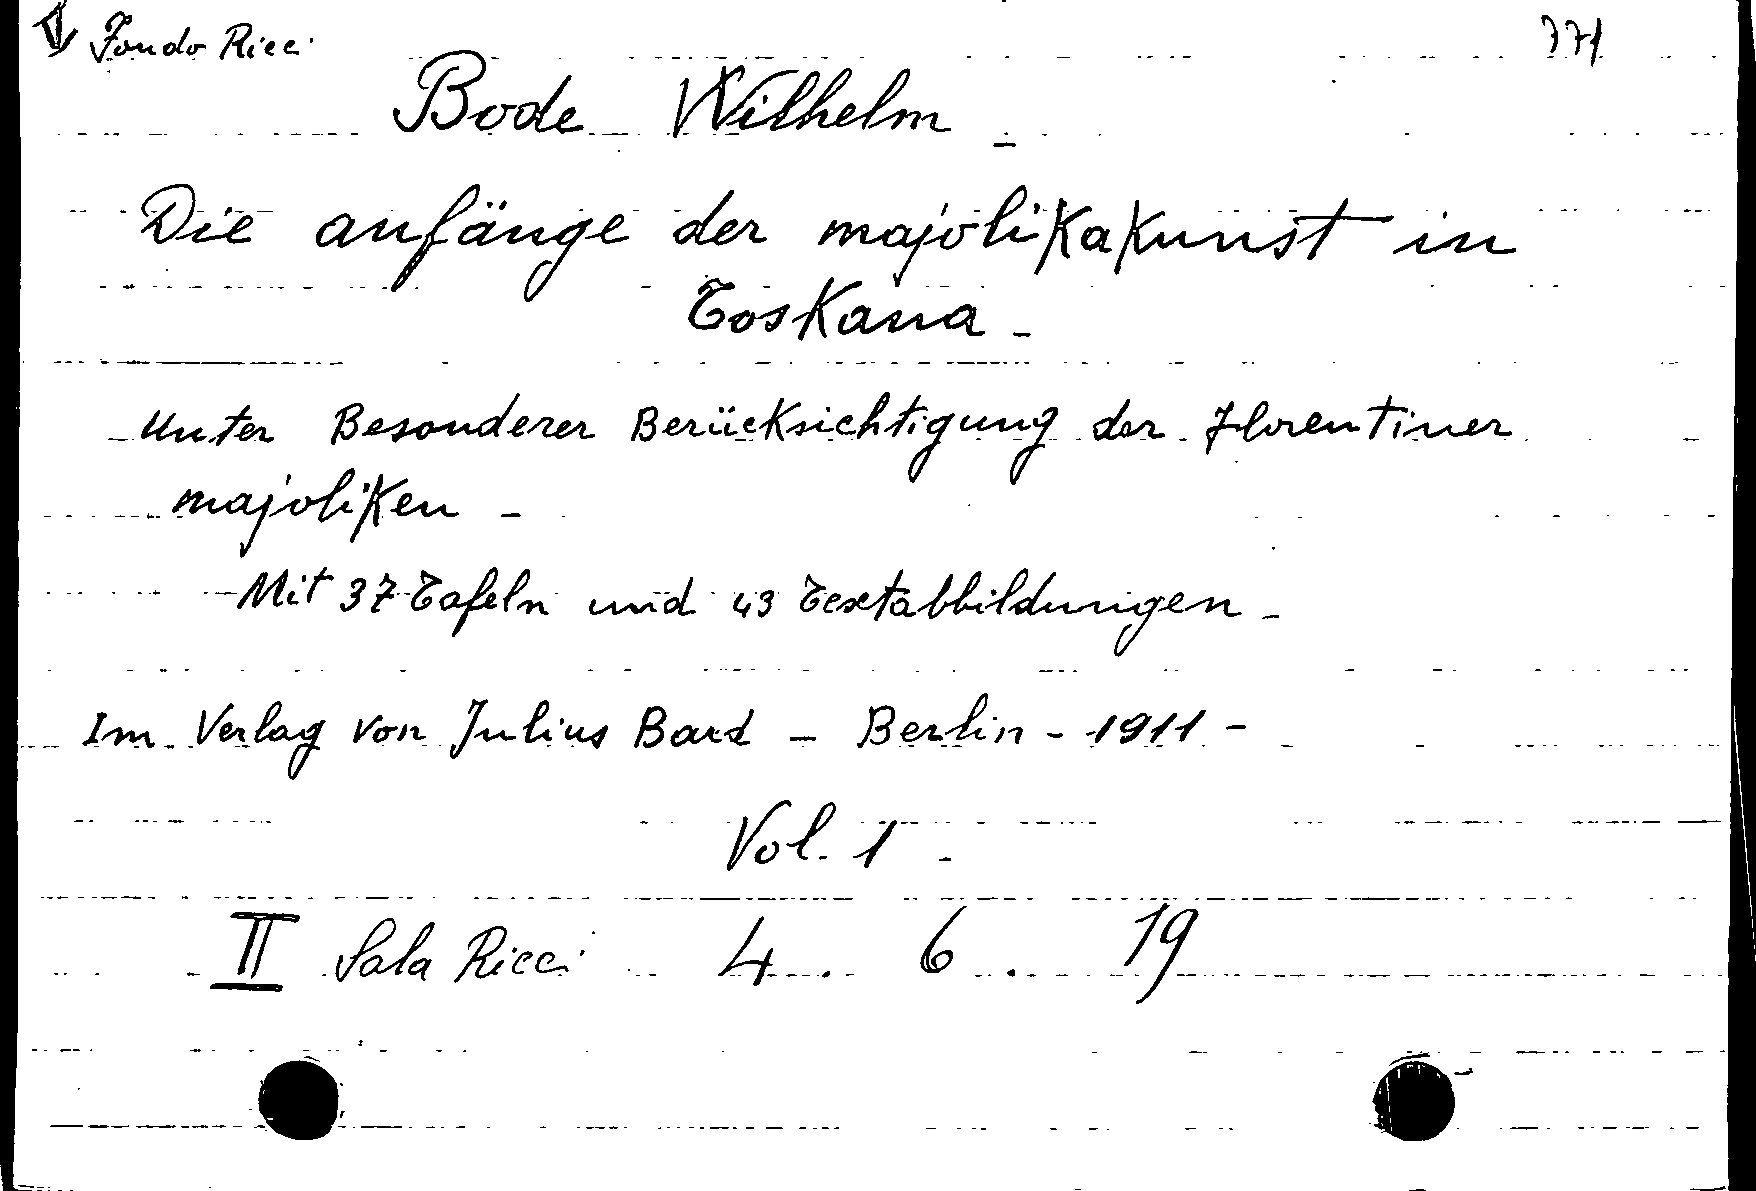 Fondo Ricci
771
Bode Wilhelm -
Die anfänge der majolikakunst in
Toskana -
Unter Besonderer Berücksichtigung der Florentiner
majoliken -
Mit 37 Tafeln und 43 Textabbildungen -
Im Verlag von Julius Bard - Berlin - 1911 -
Vol. 1 -
II Sala Ricci 4. 6. 19